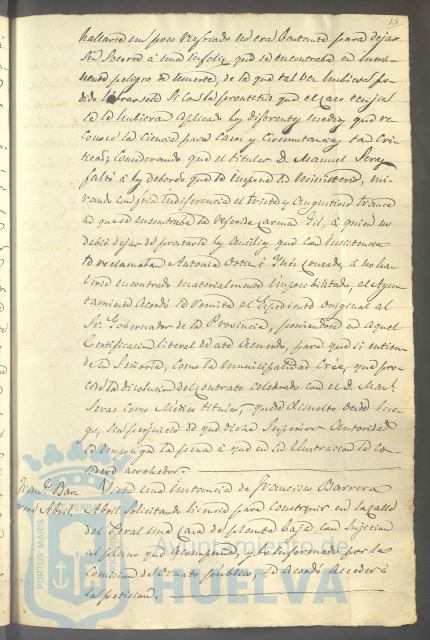 15
hallarse un poco resfriado no era bastante para dejar
sin socorro á una infeliz que se encontraba en inmi-
nente peligro de muerte, de la que tal vez hubiera po-
dido librarsele si con la prontitud que el caso exijia
se la hubiera aplicado los diferentes medios que re-
conoce la ciencia para casos y circunstancias tan cri-
ticas; Considerando que el titular D. Manuel
faltó á los deberes que le impone su ministerio, mi-
rando con fria indiferencia el triste y angustioso trance
en que se encontraba la referida Carmen Gil, á quien no
debió dejar de prestarla los auxilios que con insistencia
le reclamaban Antonia Ortiz é Ines á no ha-
berse encontrado materialmente imposibilitado, el Ayun-
tamiento acordó se remita el Espediente original al
Sr. Gobernador de la Provincia, poniendose en aquel
Certificacion literal de este acuerdo, para que si entien-
de su Señoria, como la municipalidad crée, que pro-
cede la disolucion del contrato celebrado con el D. Man.l
como Médico titular, quede disuelto desde lue-
go, sin perjuicio de que dicha Superior Autoridad
le imponga la pena á que en su ilustracion le con-
sidere acreedor.
Fran.co Bar
rera Abril.
Vista una instancia de Francisco Barrera
Abril solicitando licencia para construir en la calle
del Peral una casa de planta baja con sujecion
al plano que acompaña, y lo informado por la
Comision de Ornato público, se acordó acceder á
la peticion.
PORTUS MARIS
Ayuntamiento de
HUELVA